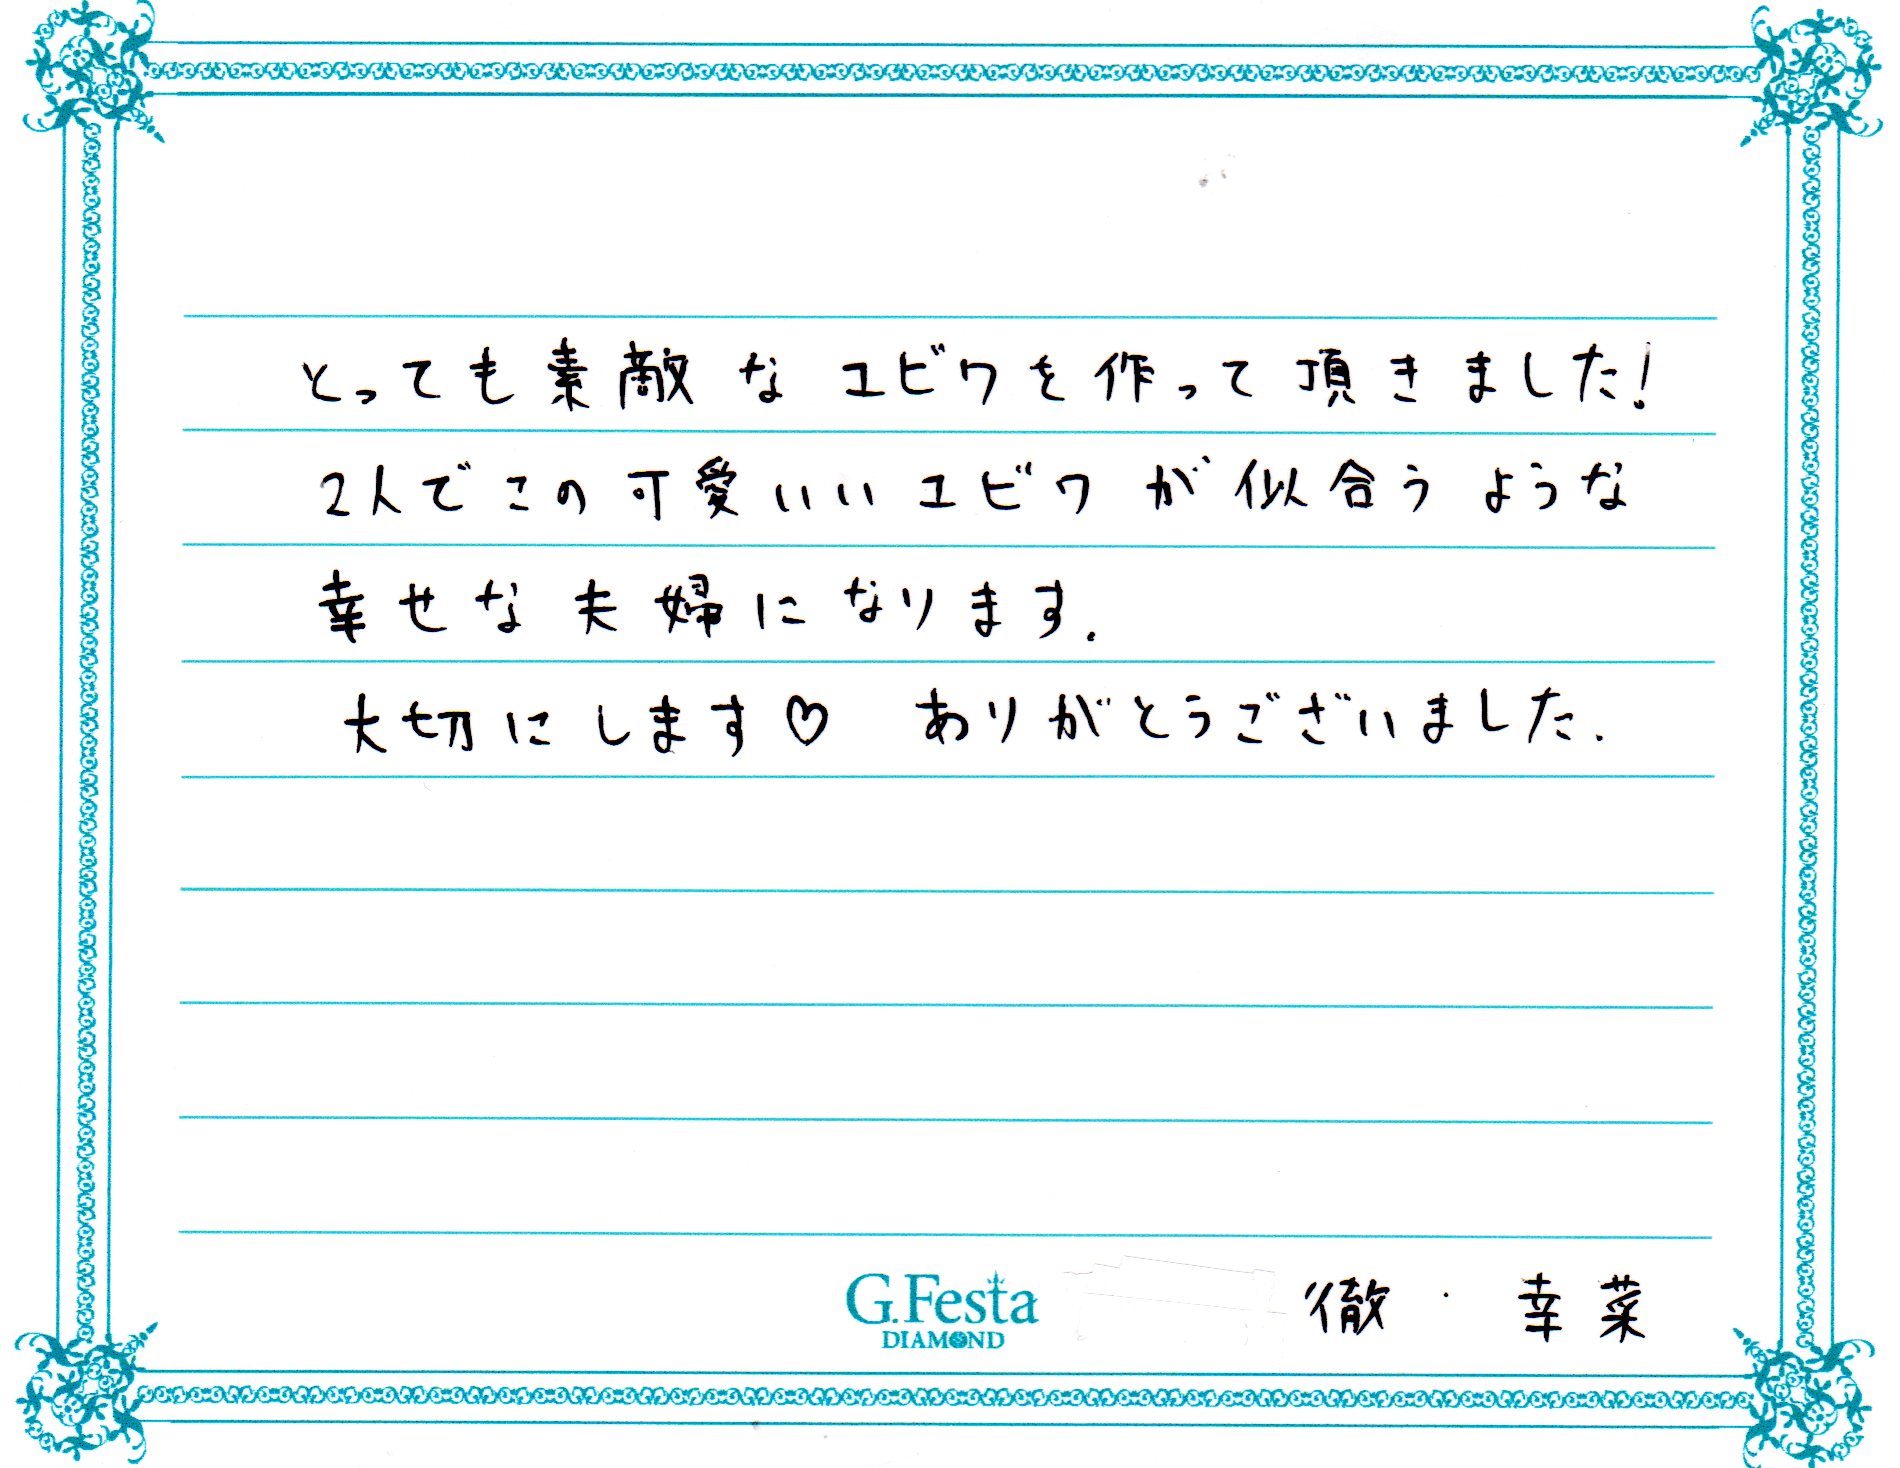 とっても素敵なユビワを作って頂きました!
2人でこの可愛いいユビワが似合うような
幸せな夫婦になります.
大切にします♡ ありがとうございました.
G.Festa
DIAMOND
徹・幸菜